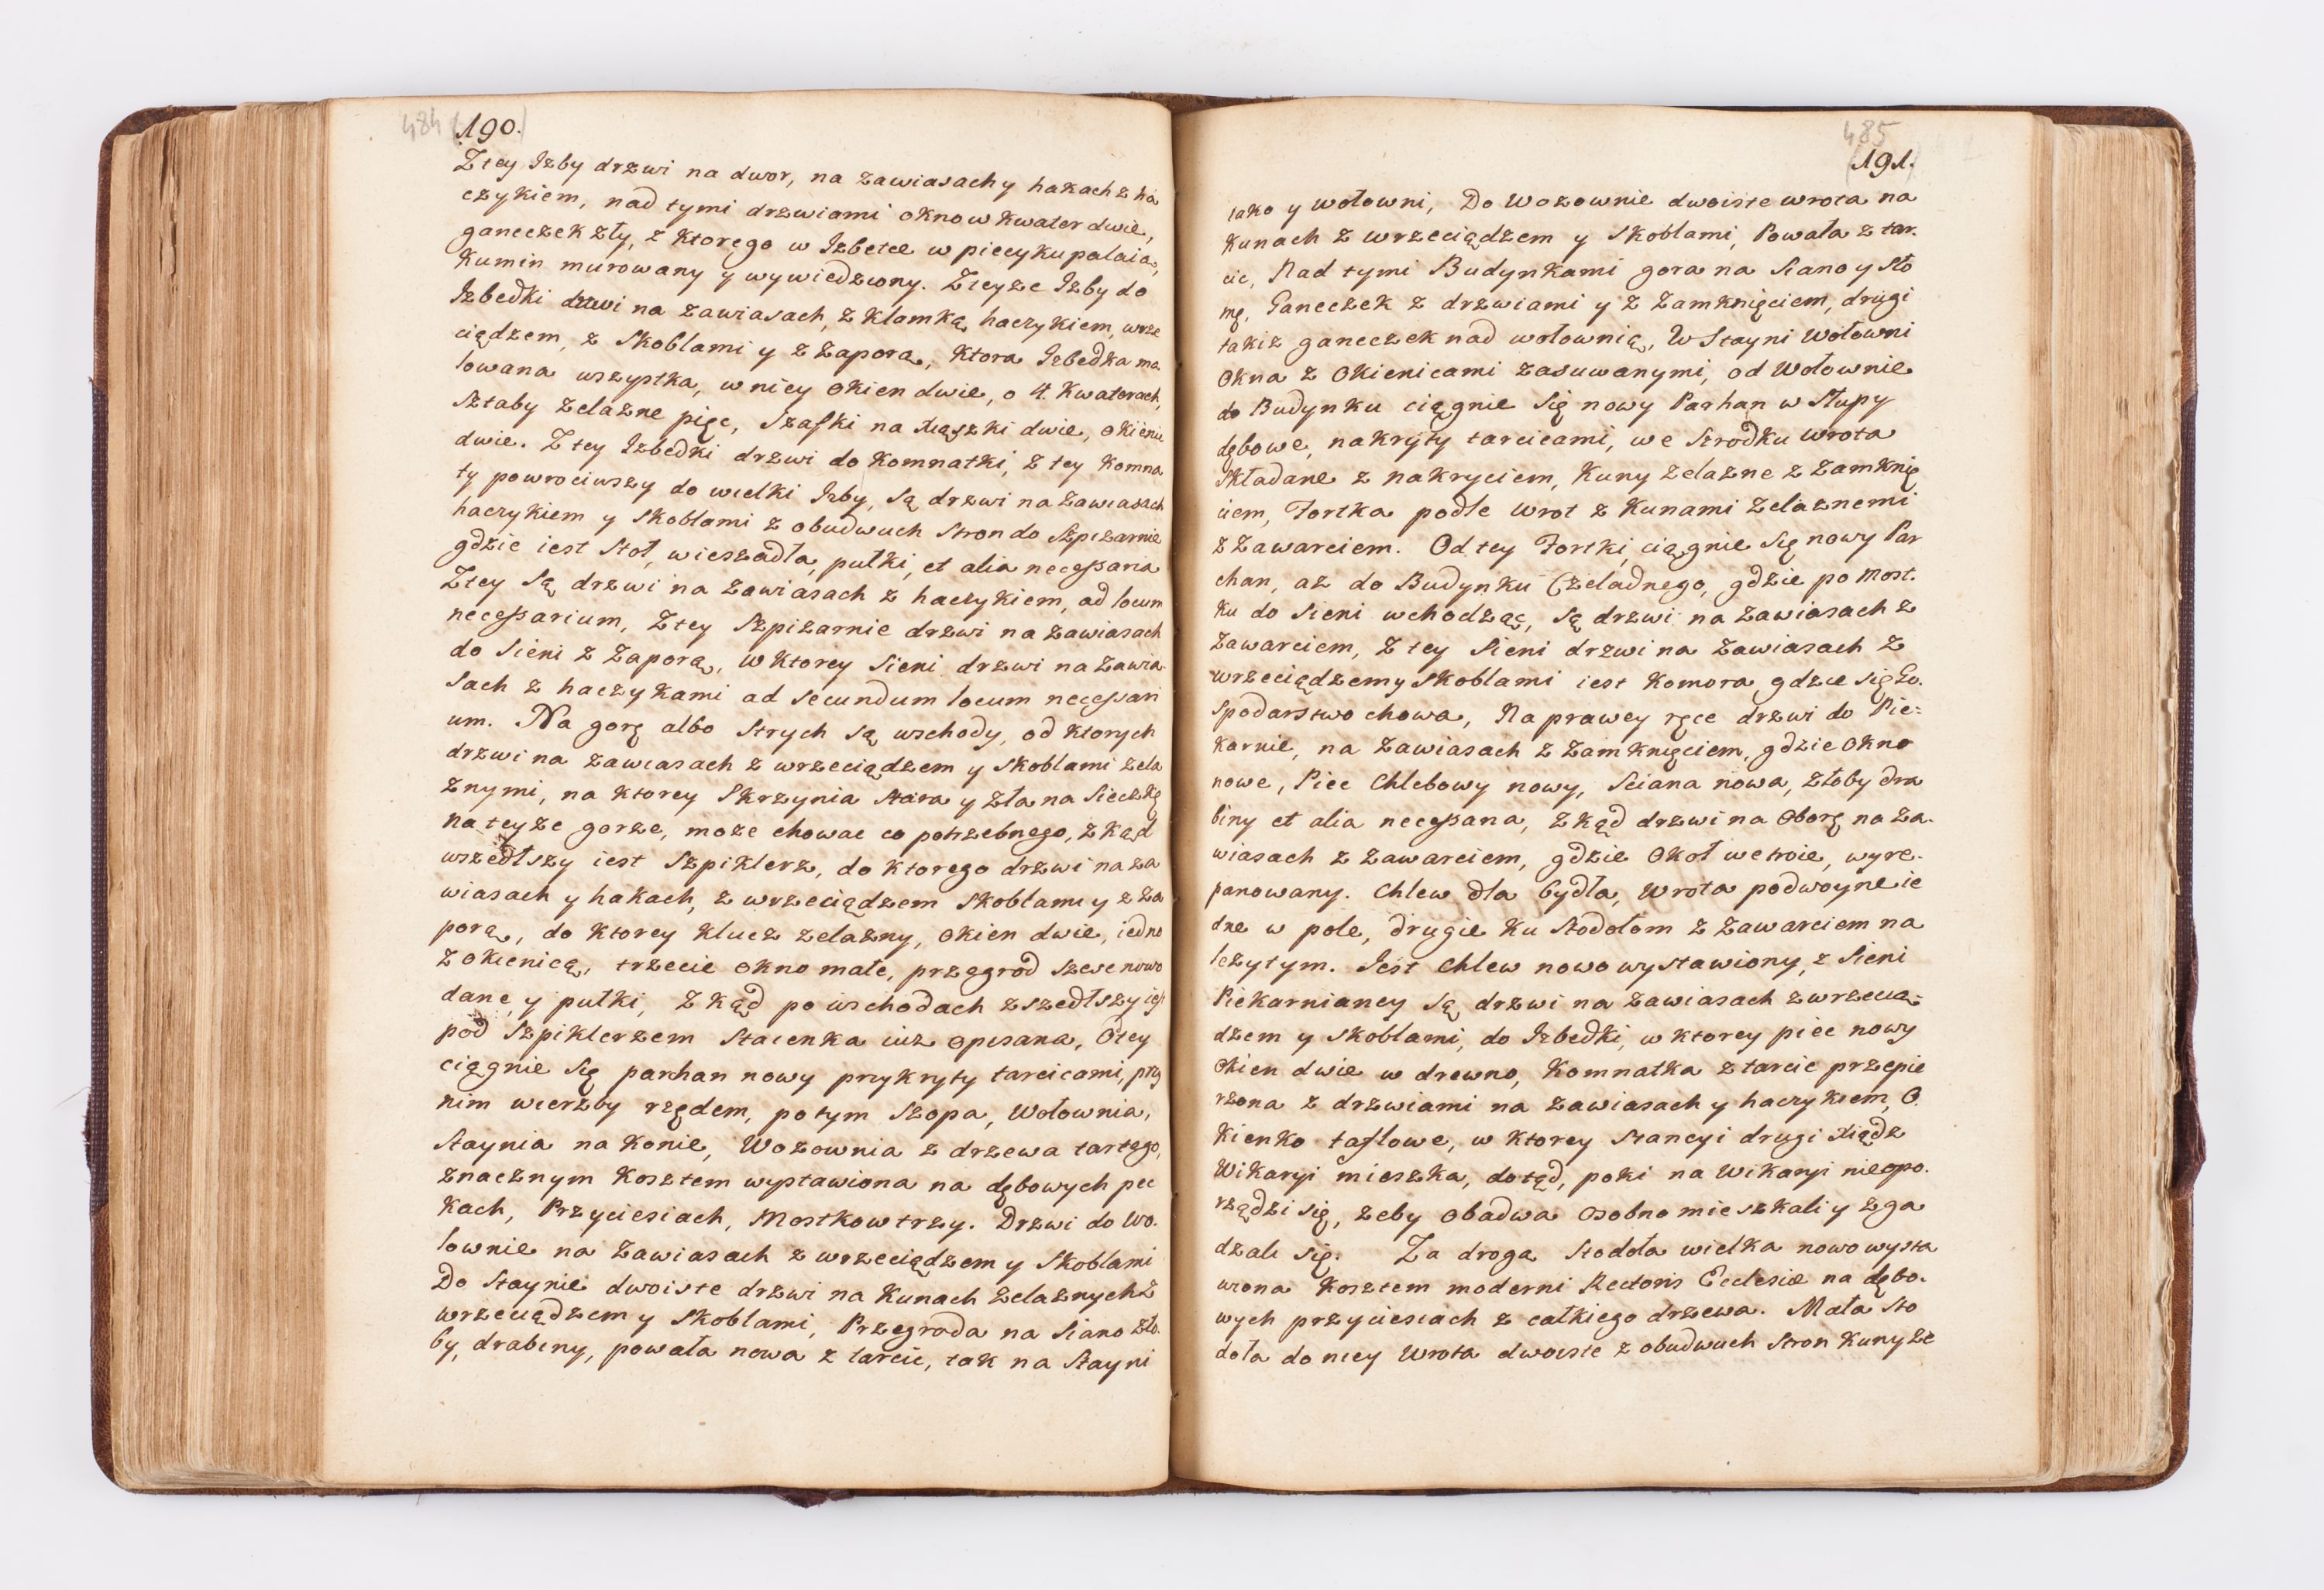 484
190.
Z tey Izby drzwi na dwor, na zawiasach y hakach z ha
czykiem, nad tymi drzwiami okno w kwater dwie,
ganeczek zły, z ktorego w Izbetce w piecyku palaia,
Kumin murowany y wywiedziony. Z teyze Izby do
Izbedki drzwi na zawiasach, z klamką, haczykiem, wrze
ciądzem, z skoblami y z zaporą, ktora Izbedka ma
lowana wszystka, w niey okien dwie, o 4. kwaterach,
sztaby zelazne pięc, szafki na xiąszki dwie, okienic
dwie. Z tey Izbedki drzwi do Komnatki, z tey Komna
ty powrociwszy do wielki Izby, są drzwi na zawiasach
haczykiem y skoblami z obudwuch stron do Szpizarnie
gdzie iest stoł, wieszadła, pułki, et alia necessaria
Z tey są drzwi na zawiasach z haczykiem, ad locum
necessarium, Z tey Szpizarnie drzwi na zawiasach
do Sieni z zaporą, w ktorey Sieni drzwi na zawia
sach z haczykami ad secundum locum necessari
um. Na gorę albo strych są wschody, od ktorych
drzwi na zawiasach z wrzeciądzem y skoblami zela
znymi, na ktorey Skrzynia stara y zła na Sieczkę
na teyze gorze, moze chowac co potrzebnego, zkąd
wszedłszy iest Szpiklerz, do ktorego drzwi na za
wiasach y hakach, z wrzeciądzem skoblami y z za
porą, do ktorey klucz zelazny, okien dwie, iedno
z okienicą, trzecie okno małe, przegrod szesc nowo
dane, y pułki, Zkąd po wschodach zszedłszy iest
pod Szpiklerzem staienka iuz opisana, Otey
ciągnie się parhan nowy przykryty tarcicami, przy
nim wierzby rzędem, potym Szopa, Wołownia,
Staynia na Konie, Wozownia z drzewa tartego,
znacznym kosztem wystawiona na dębowych pec
kach, Przyciesiach, Mostkow trzy. Drzwi do Wo.
łownie na zawiasach z wrzeciądzem y skoblami
Do Staynie dwoiste drzwi na Kunach zelaznych z
wrzeciądzem y skoblami, Przegroda na siano zło.
by, drabiny, powała nowa z tarcic, tak na Stayni
485
191.
iako y wołowni, Do Wozownie dwoiste wrota na
Kunach z wrzeciądzem y skoblami, Powała z tar.
cic, Nad tymi Budynkami gora na Siano y sło
mę, Ganeczek z drzwiami y z zamknięciem, drugi
takiz ganeczek nad wołownią, W Stayni Wołowni
okna z okienicami zasuwanymi, od Wołownie
do Budynku ciągnie się nowy Parhan w słupy
dębowe, nakryty tarcicami, we srodku wrota
składane z nakryciem, Kuny zelazne z zamknię
ciem, Fortka podle wrot z Kunami zelaznemi
z zawarciem. Od tey Fortki ciągnie się nowy Par
chan, az do Budynku Czeladnego, gdzie po Most.
ku do Sieni wchodząc, są drzwi na zawiasach z
zawarciem, Z tey Sieni drzwi na zawiasach z
wrzeciądzem y skoblami iest Komora gdzie się Go.
spodarstwo chowa, Na prawey ręce drzwi do Pie:
karnie, na zawiasach z zamknięciem, gdzie okno
nowe, Piec Chlebowy nowy, sciana nowa, złoby dra
biny et alia necessaria, zkąd drzwi na Oborę na za.
wiasach z zawarciem, gdzie okoł we troie, wyre.
panowany. Chlew dla bydła, wrota podwoyne ie
dne w pole, drugie ku stodołom z zawarciem na
lezytym. Iest chlew nowo wystawiony, z Sieni
Piekarnianey są drzwi na zawiasach z wrzecią-
dzem y skoblami, do Izbedki, w ktorey piec nowy
okien dwie w drewno, Komnatka z tarcic przepie
rzona z drzwiami na zawiasach y haczykiem, O.
kienko taflowe, w ktorey stancyi drugi xiądz
Wikaryi mieszka, dotąd, poki na Wikaryi nieopo.
rządzi się, zeby obadwa osobno mieszkali y zga
dzali się. Za droga stodoła wielka nowo wysta
wiona Kosztem moderni Rectoris Ecclesiæ na dębo.
wych przyciesiach z całkiego drzewa. Mała sto
doła do niey wrota dwoiste z obudwuch stron Kuny ze